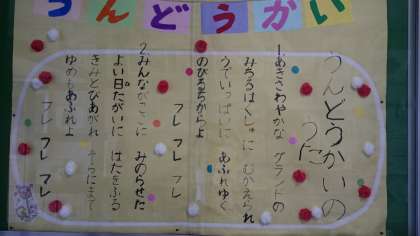 うんどうかい
うんどうかいの
うた
1あきさわやかな グランドの
みちるはくしゅに むかえられ
うでいっぱいに あふれゆく
のびるちからよ
フレ フレ フレ
2みんながここに みのらせた
よい日たがいに はたをふる
きみとびあがれ そらにまで
ゆめもあふれよ
フレ フレ フレ